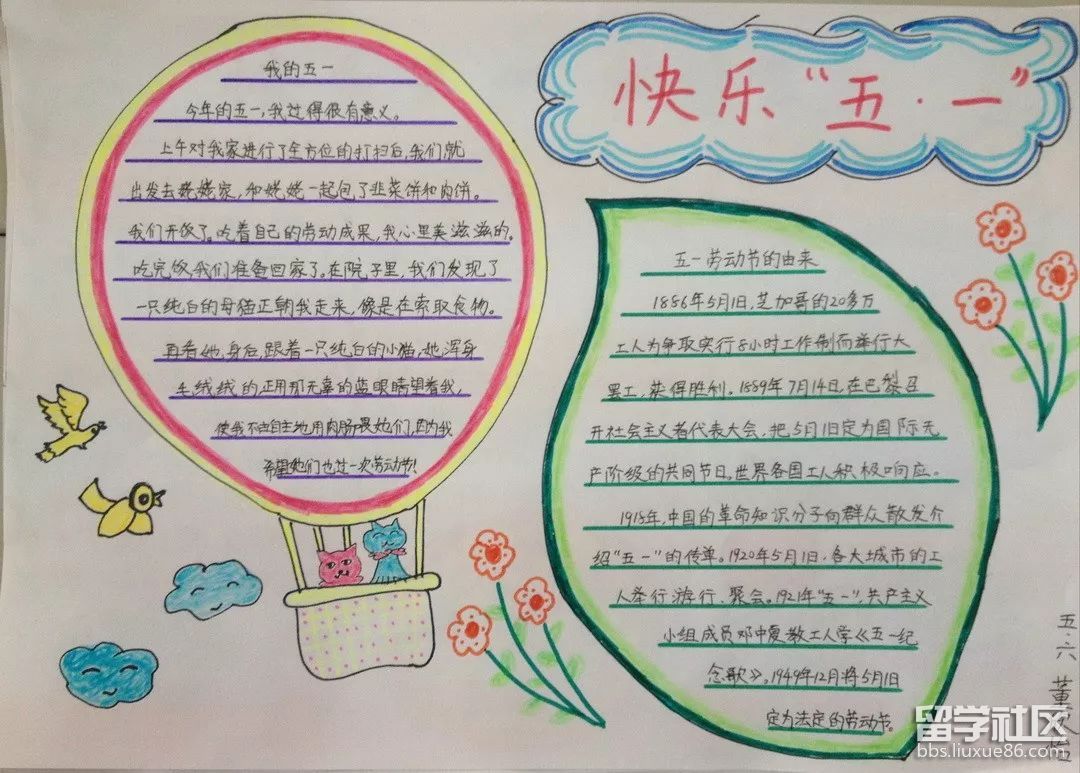 快乐“五·一”
我的五一
今年的五一，我过得很有意义。
上午对我家进行了全方位的打扫后，我们就
出发去姥姥家，和姥姥一起包了韭菜饼和肉饼。
我们开饭了。吃着自己的劳动成果，我心里美滋滋的。
吃完饭，我们准备回家了。在院子里，我们发现了
一只纯白的母猫正朝我走来，像是在索取食物。
再看她，身后，跟着一只纯白的小猫，她浑身
毛绒绒的正用那无辜的蓝眼睛望着我，
使我不由自主地用肉肠喂她们，因为我
希望她们也过一次劳动节！
五一劳动节的由来
1886年5月1日，芝加哥的20多万
工人为争取实行8小时工作制而举行大
罢工，获得胜利。1889年7月14日，在巴黎召
开社会主义者代表大会，把5月1日定为国际无
产阶级的共同节日。世界各国工人积极响应。
1918年，中国的革命知识分子向群众散发介
绍“五一”的传单。1920年5月1日，各大城市的工
人举行游行、聚会。1921年“五一”，共产主义
小组成员邓中夏教工人学《五一纪
念歌》。1949年12月将5月1日
定为法定的劳动节。
五·六 董
留学社区
bbs.liuxue86.com